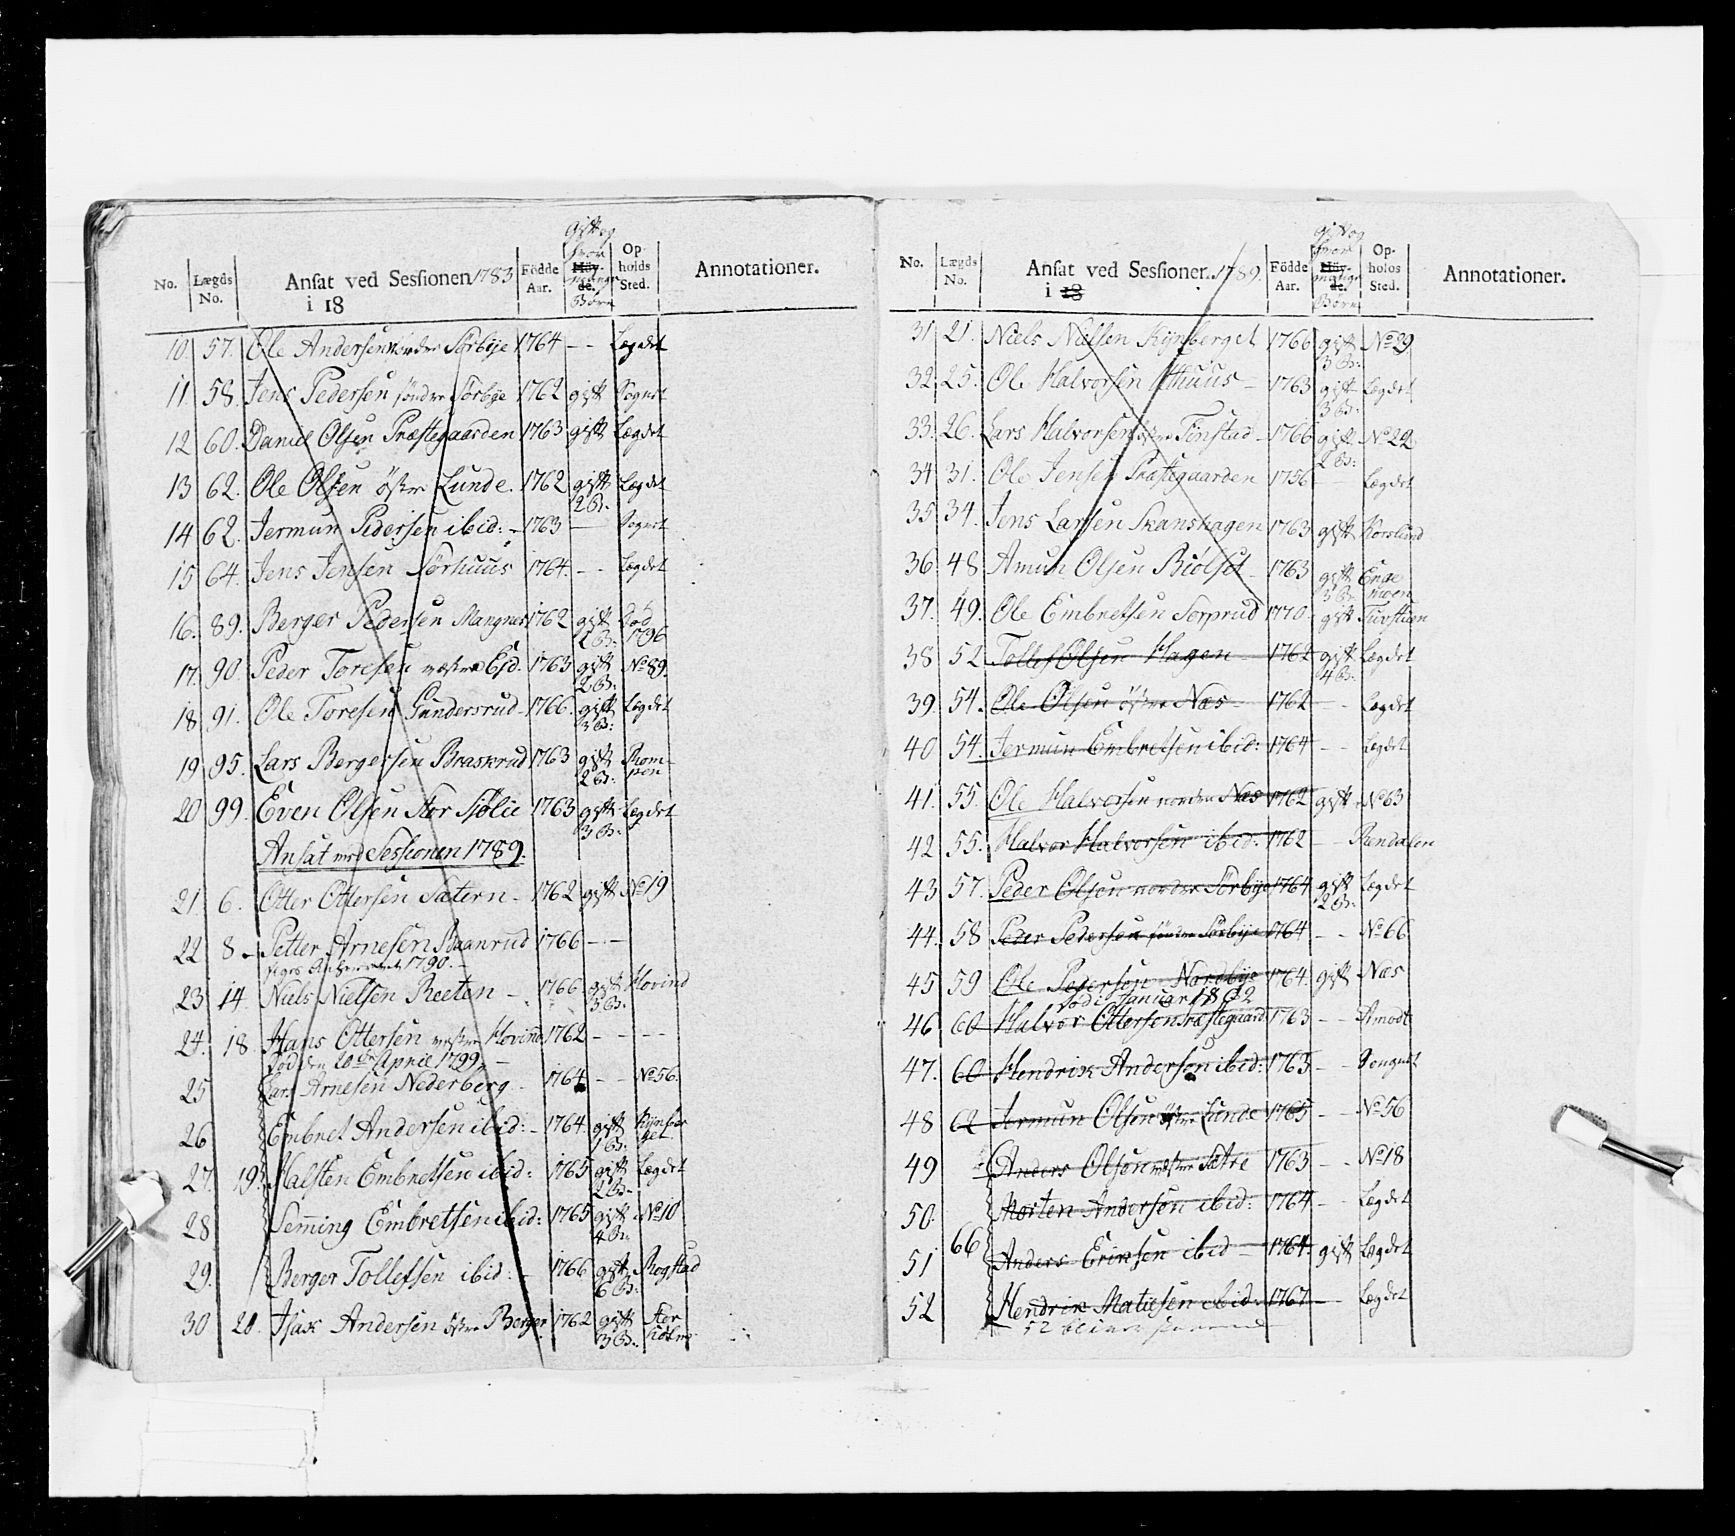 No. Lægds No. Ansat ved Sessionen 1783 i 18 Födde Aar. gift og hvor mange Børn Opholds Sted. Annotationer.
10 57. Ole Andersen nordre Sørbye 1764 - - Lægdet
11 58. Jens Pedersen söndre Sørbye 1762 gift Sognet
12 60. Daniel Olsen Præstegaarden 1763 gift Lægdet
13 62. Ole Olsen östre Lunde. 1762 gift 2 B: Lægdet
14 62. Jermun Pedersen ibid: - 1763 - Sognet
15 64. Jens Jensen Sørhuus 1764. - - Lægdet
16. 89. Berger Pedersen Mangnes 1762 gift 2 B: Død 1796
17. 90. Peder Toresen vestre Eid. 1763 gift 2 B: No 89.
18 91. Ole Toresen Gundersrud 1766. gift 3 B: Lægdet
19 95. Lars Bergersen Braskrud 1763 gift 2 B: Rompen
20 99. Even Olsen Stor Sjølie 1763 gift 3 B: Lægdet
Ansat ved Sessionen 1789.
21 6. Otter Ottersen Sætern - 1762 gift No 19
22 8 - Petter Arnesen Baanrud 1766 - -
1790. -
23 14 Niels Nielsen Reeten - 1766 gift 3 B: Hovind
24. 18 Hans Ottersen vestre Hovind 1762 - - - -
Død den 20de April 1799. -
25 Lars Arnesen Nederberg - 1764 - - No 56.
26 Embret Andersen ibid: - 1764. gift 1 B: Kynberget
27. 19. Halsten Embretsen ibid: 1765 gift 2 B: Lægdet
28 Semming Embretsen ibid: 1765 gift 4 B: No 10
29. Berger Tollefsen ibid: - 1766 gift 6 B: Rogstad
30 20. Isak Andersen östre Berger 1762 gift 3 B:
No. Lægds No. Ansat ved Sessioner. 1789. i 18 Födde Aar. gift og hvor mange Børn Opholds Sted. Annotationer.
31 21. Niels Nielsen Kynberget 1766 gift 3 B: No 29
32. 25. Ole Halvorsen Thuus - 1763 gift 3 B: Lægdet
33. 26. Lars Halvorsen östre Finstad - 1766 gift 2 B: No 22
34 31. Ole Jensen Præstegaarden 1756 - Lægdet
35 34. Jens Larsen Skanshagen 1763 gift Korslund
36 48 Amun Olsen Biölset - 1763 gift 3 B: Engemoen
37. 49. Ole Embretsen Sorprud 1770 - gift
38 52 Tollef Olsen Hagen - 1762 gift 4 B: Lægdet
39. 54. Ole Olsen östre Næs - 1762 - - Lægdet
40 54. Jermun Embretsen ibid: 1764 - - Lægdet
41. 55. Ole Halvorsen nordre Næs 1762 gift - No 63
42 55. Halvor Halvorsen ibid: 1762 - - Rendalen
43 57. Peder Olsen nordre Sørbye 1764 gift 2 B: Lægdet
44. 58 Peder Pedersen søndre Sørbye 1764 - - No 66
45 59 Ole Pedersen Nordbye 1764. gift Næs
død i Januar 1802
46 60 Halvor Ottersen Præstegaard 1763 - - Amodt
47. 60 Hendrik Andersen ibid: 1763 - - Sognet
48 62 Jermun Olsen östre Lunde 1765 - - No 56
49 Anders Olsen vestre Sætre 1763 - - No 18
50. Morten Andersen ibid: 1764 - - Lægdet
51 66 Anders Eriksen ibid - 1764 - gift Lægdet
52 Hendrik Matiesen ibid. 1767 - Lægdet
52